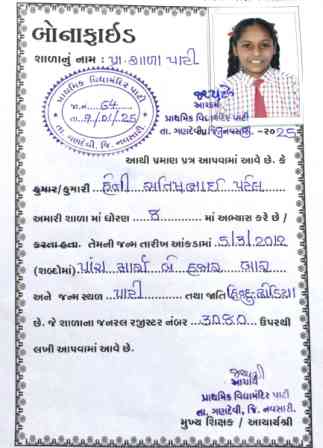 બોનાફાઈડ
શાળાનું નામ : પ્રા. શાળા પાટી
પ્રાથમિક વિદ્યામંદિર પાટી
જા.નં. 64
તા. 9/01/25
તા. ગણદેવી, જિ. નવસારી.
આચાર્ય
પ્રાથમિક વિદ્યામંદિર પાટી
તા. ગણદેવી, જિ. નવસારી. -૨૦25
આથી પ્રમાણ પત્ર આપવામાં આવે છે. કે
કુમાર/કુમારી પટેલ
અમારી શાળા માં ધોરણ 8 માં અભ્યાસ કરે છે /
કરતા હતા. તેમની જન્મ તારીખ આંકડામાં 5/3/2012
(શબ્દોમાં) પાંચ માર્ચ બે હજાર બાર
અને જન્મ સ્થળ પાટી તથા જાતિ હિન્દુ ઢોડિયા
છે. જે શાળાના જનરલ રજીસ્ટર નંબર 3080 ઉપરથી
લખી આપવામાં આવે છે.
આચાર્ય
પ્રાથમિક વિદ્યામંદિર પાટી
તા. ગણદેવી, જિ. નવસારી.
મુખ્ય શિક્ષક / આચાર્યશ્રી